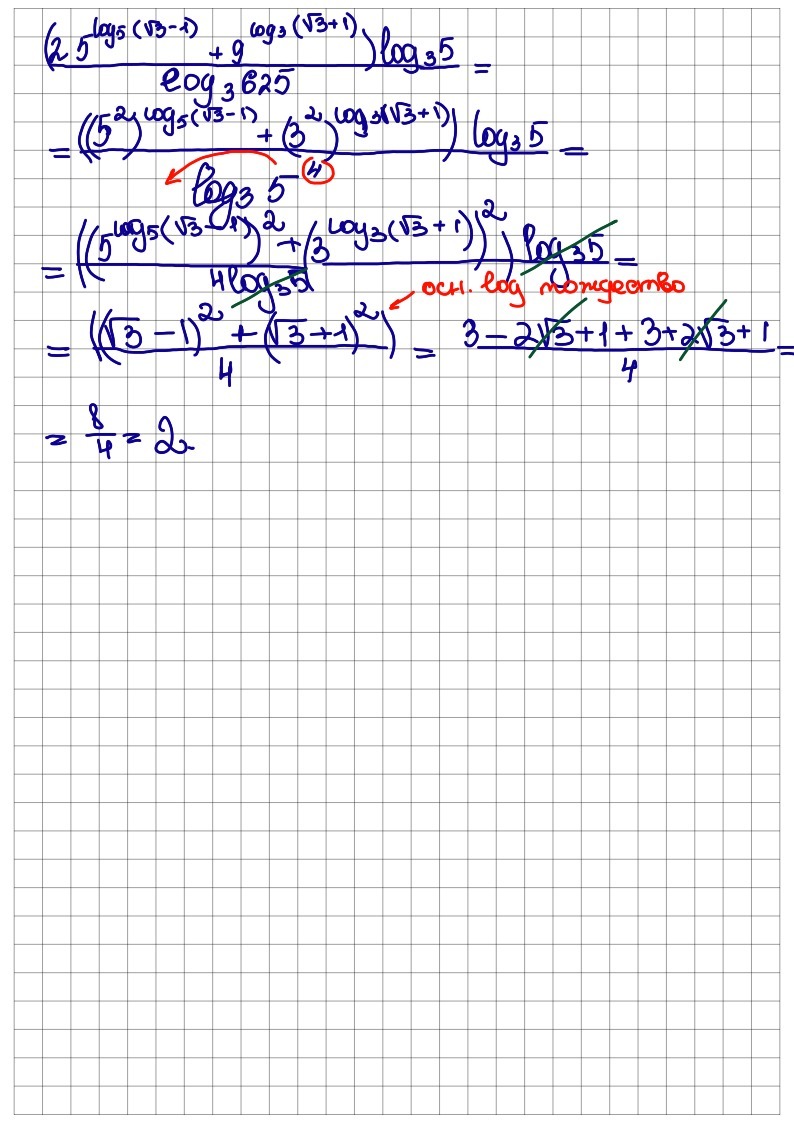 (25^log₅(√3−1) + 9^log₃(√3+1)) log₃5 =
log₃625
= ((5²)^log₅(√3−1) + (3²)^log₃(√3+1)) log₃5 =
log₃5⁴
= ((5^log₅(√3−1))² + (3^log₃(√3+1))²) log₃5 =
4log₃5
осн. log тождество
= ((√3−1)² + (√3+1)²) = 3 − 2√3 + 1 + 3 + 2√3 + 1 =
4 4
= 8/4 = 2